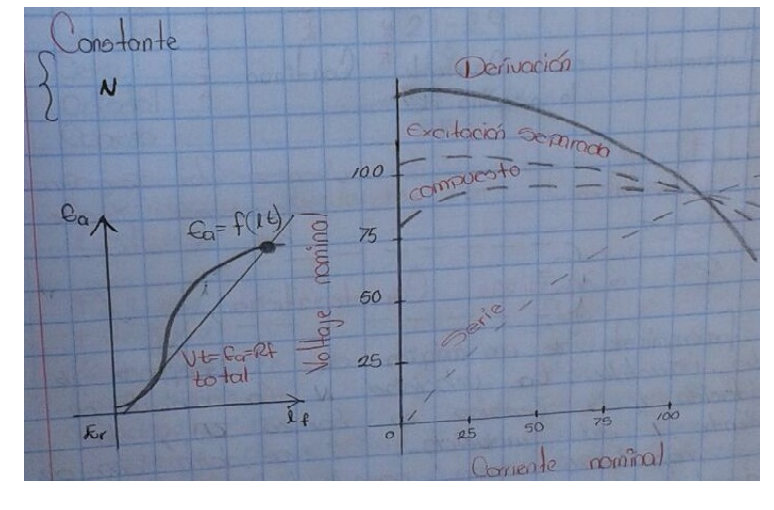 Constante
N
Ea
Ea = f(It)
Vt = Ea = Rf
total
Er
If
Derivación
Excitación separada
compuesto
Serie
Voltaje nominal
100
75
50
25
0
25
50
75
100
Corriente nominal